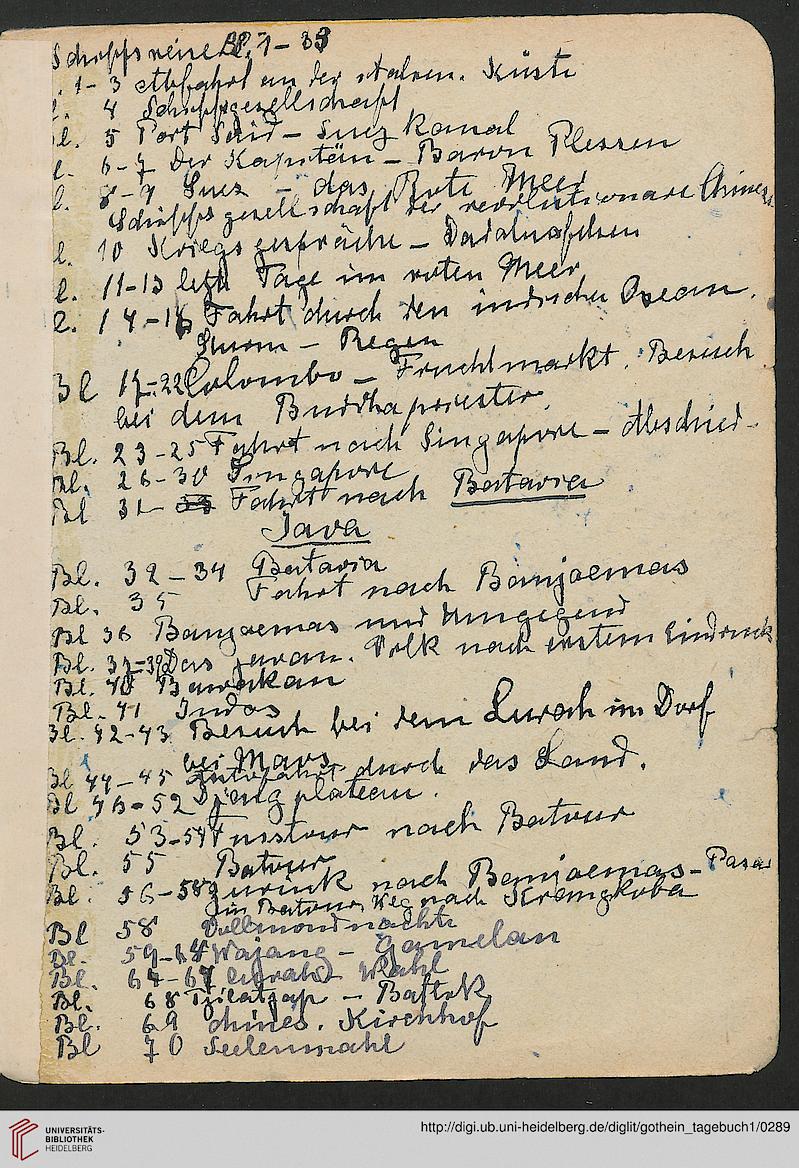 Schiffsreise Bl. 1–33
. 1–3 Abfahrt an der italien. Küste
l. 4 Schiffsgesellschaft
Bl. 5 Port Said – Suez Kanal
l. 6–7 Der Kapitän – Baron Plessen
l. 8–9 Suez – das Rote Meer
Schiffsgesellschaft der revolutionäre Chinese
l. 10 Kriegsgespräche –
l. 11–13 letzte Tage im roten Meer
l. 14–16 Fahrt durch den indischen Ozean.
Sturm – Regen
Bl 17–22 Colombo – Fruchtmarkt. Besuch
bei dem Buddhapriester
Bl. 23–25 Fahrt nach Singapore – Abschied.
Bl. 26–30 Singapore
Bl 31– 33 Fahrt nach Batavia
Java
Bl. 32–34 Batavia
Bl. 35 Fahrt nach Banjoemas
Bl 36 Banjoemas und Umgegend
Bl. 37–39 Das javan. Volk nach erstem Eindruck
Bl. 40
Bl. 41 Indos
Bl. 42–43 Besuch bei dem Lurah im Dorf
bei Maos
Bl 44–45 Autofahrt durch das Land.
Bl 46–52 Djengplateau.
Bl. 53–54 Fusstour nach Batour
Bl. 55 Batour
Bl. 56–58 zurück nach Banjoemas – Pasar
in Batour, Weg nach Krangkoba
Bl 58 Vollmondnächte
Bl. 59–64 Wajang – Gamelan
Bl. 64–67 Lurah Wahl
Bl. 68 Tjilatjap – Baftik
Bl. 69 chines. Kirchhof
Bl 70 Seelenmahl
UNIVERSITÄTS-
BIBLIOTHEK
HEIDELBERG
http://digi.ub.uni-heidelberg.de/diglit/gothein_tagebuch1/0289